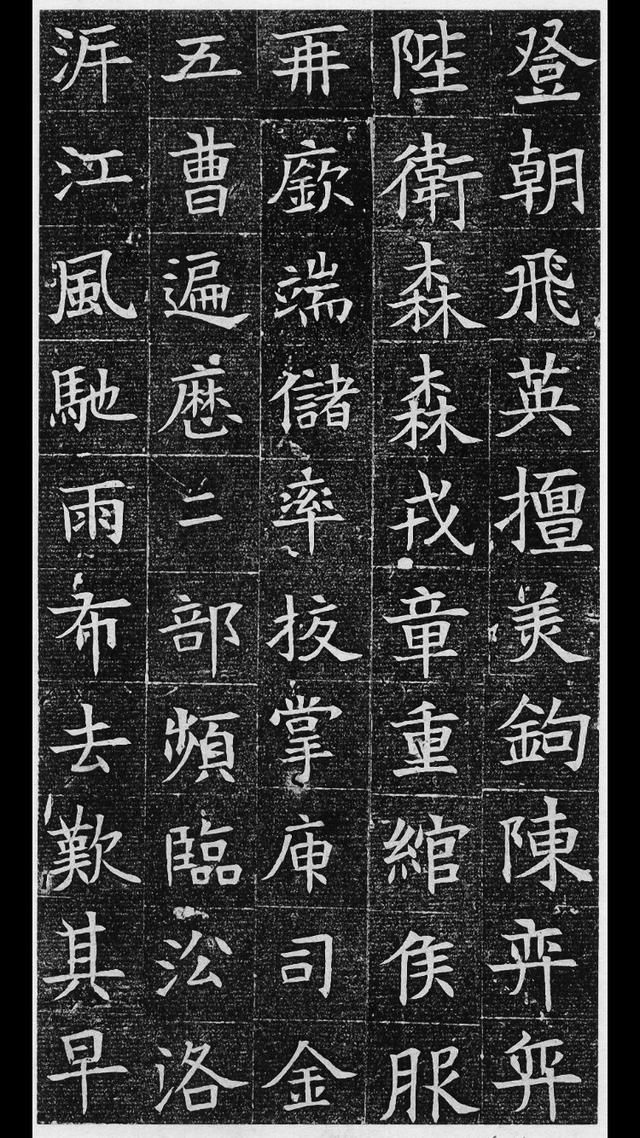 登朝飛英擅美鉤陳弈弈
陛衛森森戎章重綰侯服
再廞端儲率校掌庾司金
五曹遍歷二部頻臨㳂洛
泝江風馳雨布去歎其早